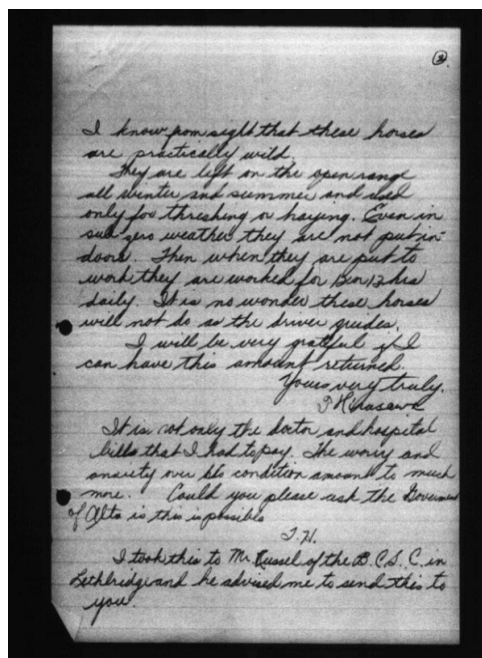 2
I know from sight that these horses
are practically wild.
They are left on the open range
all winter and summer and used
only for threshing or haying. Even in
sub zero weather they are not put in-
doors. Then when they are put to
work they are worked for 10 or 12 hrs
daily. It is no wonder these horses
will not do as the driver guides.
I will be very grateful if I
can have this amount returned.
Yours very truly.
T Hirasawa
It is not only the doctor and hospital
bills that I had to pay. The worry and
anxiety over his condition amount to much
more. Could you please ask the Government
of Alta is this is possible
T.H.
I took this to Mr Russel of the B.C.S.C. in
Lethbridge and he advised me to send this to
you.